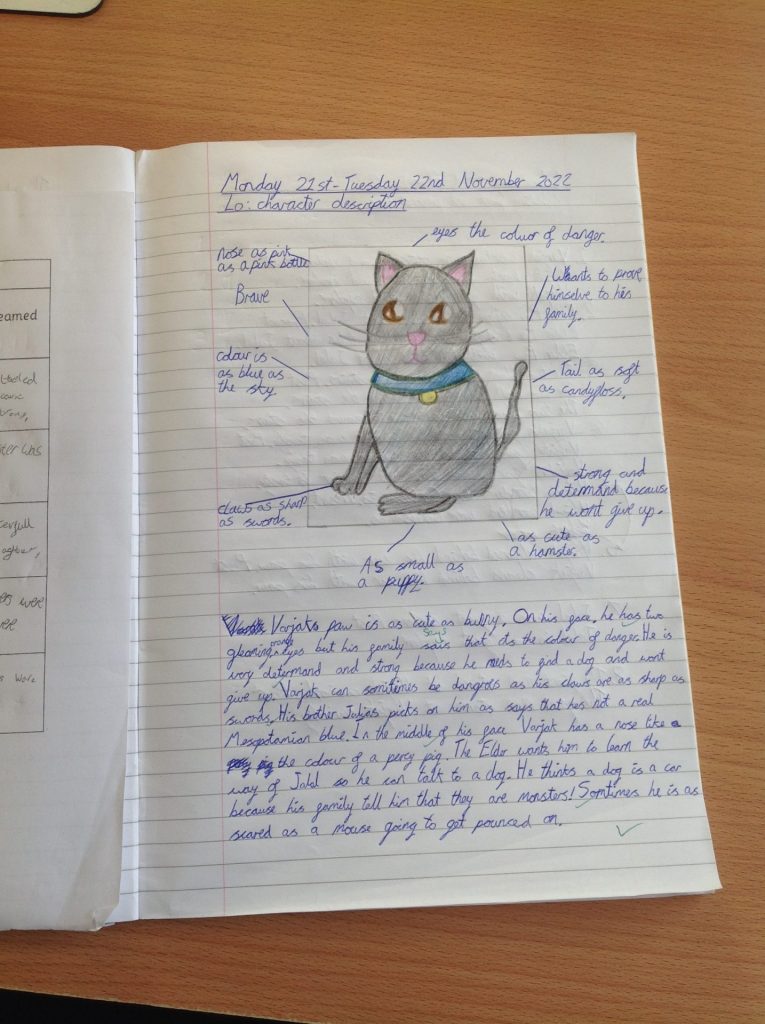 Monday 21st-Tuesday 22nd November 2022
Lo: character description
eyes the colour of danger.
nose as pink
as a pink bottle
Brave
colour is
as blue as
the sky
claws as sharp
as swords.
Wants to prove
himselve to his
family.
Tail as soft
as candyfloss.
strong and
determand because
he wont give up.
as cute as
a hamster.
As small as
a puppy.
Varjaks paw is as cute as bunny. On his face, he has two
gleaming orange eyes but his family says that its the colour of danger. He is
very determand and strong because he needs to find a dog and wont
give up. Varjak can somitimes be dangros as his claws are as sharp as
swords. His brother Julias picks on him as says that hes not a real
Mesopotamian blue. In the middle of his face Varjak has a nose like
the colour of a percy pig. The Elder wants him to learn the
way of Jalal so he can talk to a dog. He thinks a dog is a car
because his family tell him that they are monsters! Somtimes he is as
scared as a mouse going to get pounced on.
earned
ter was
were